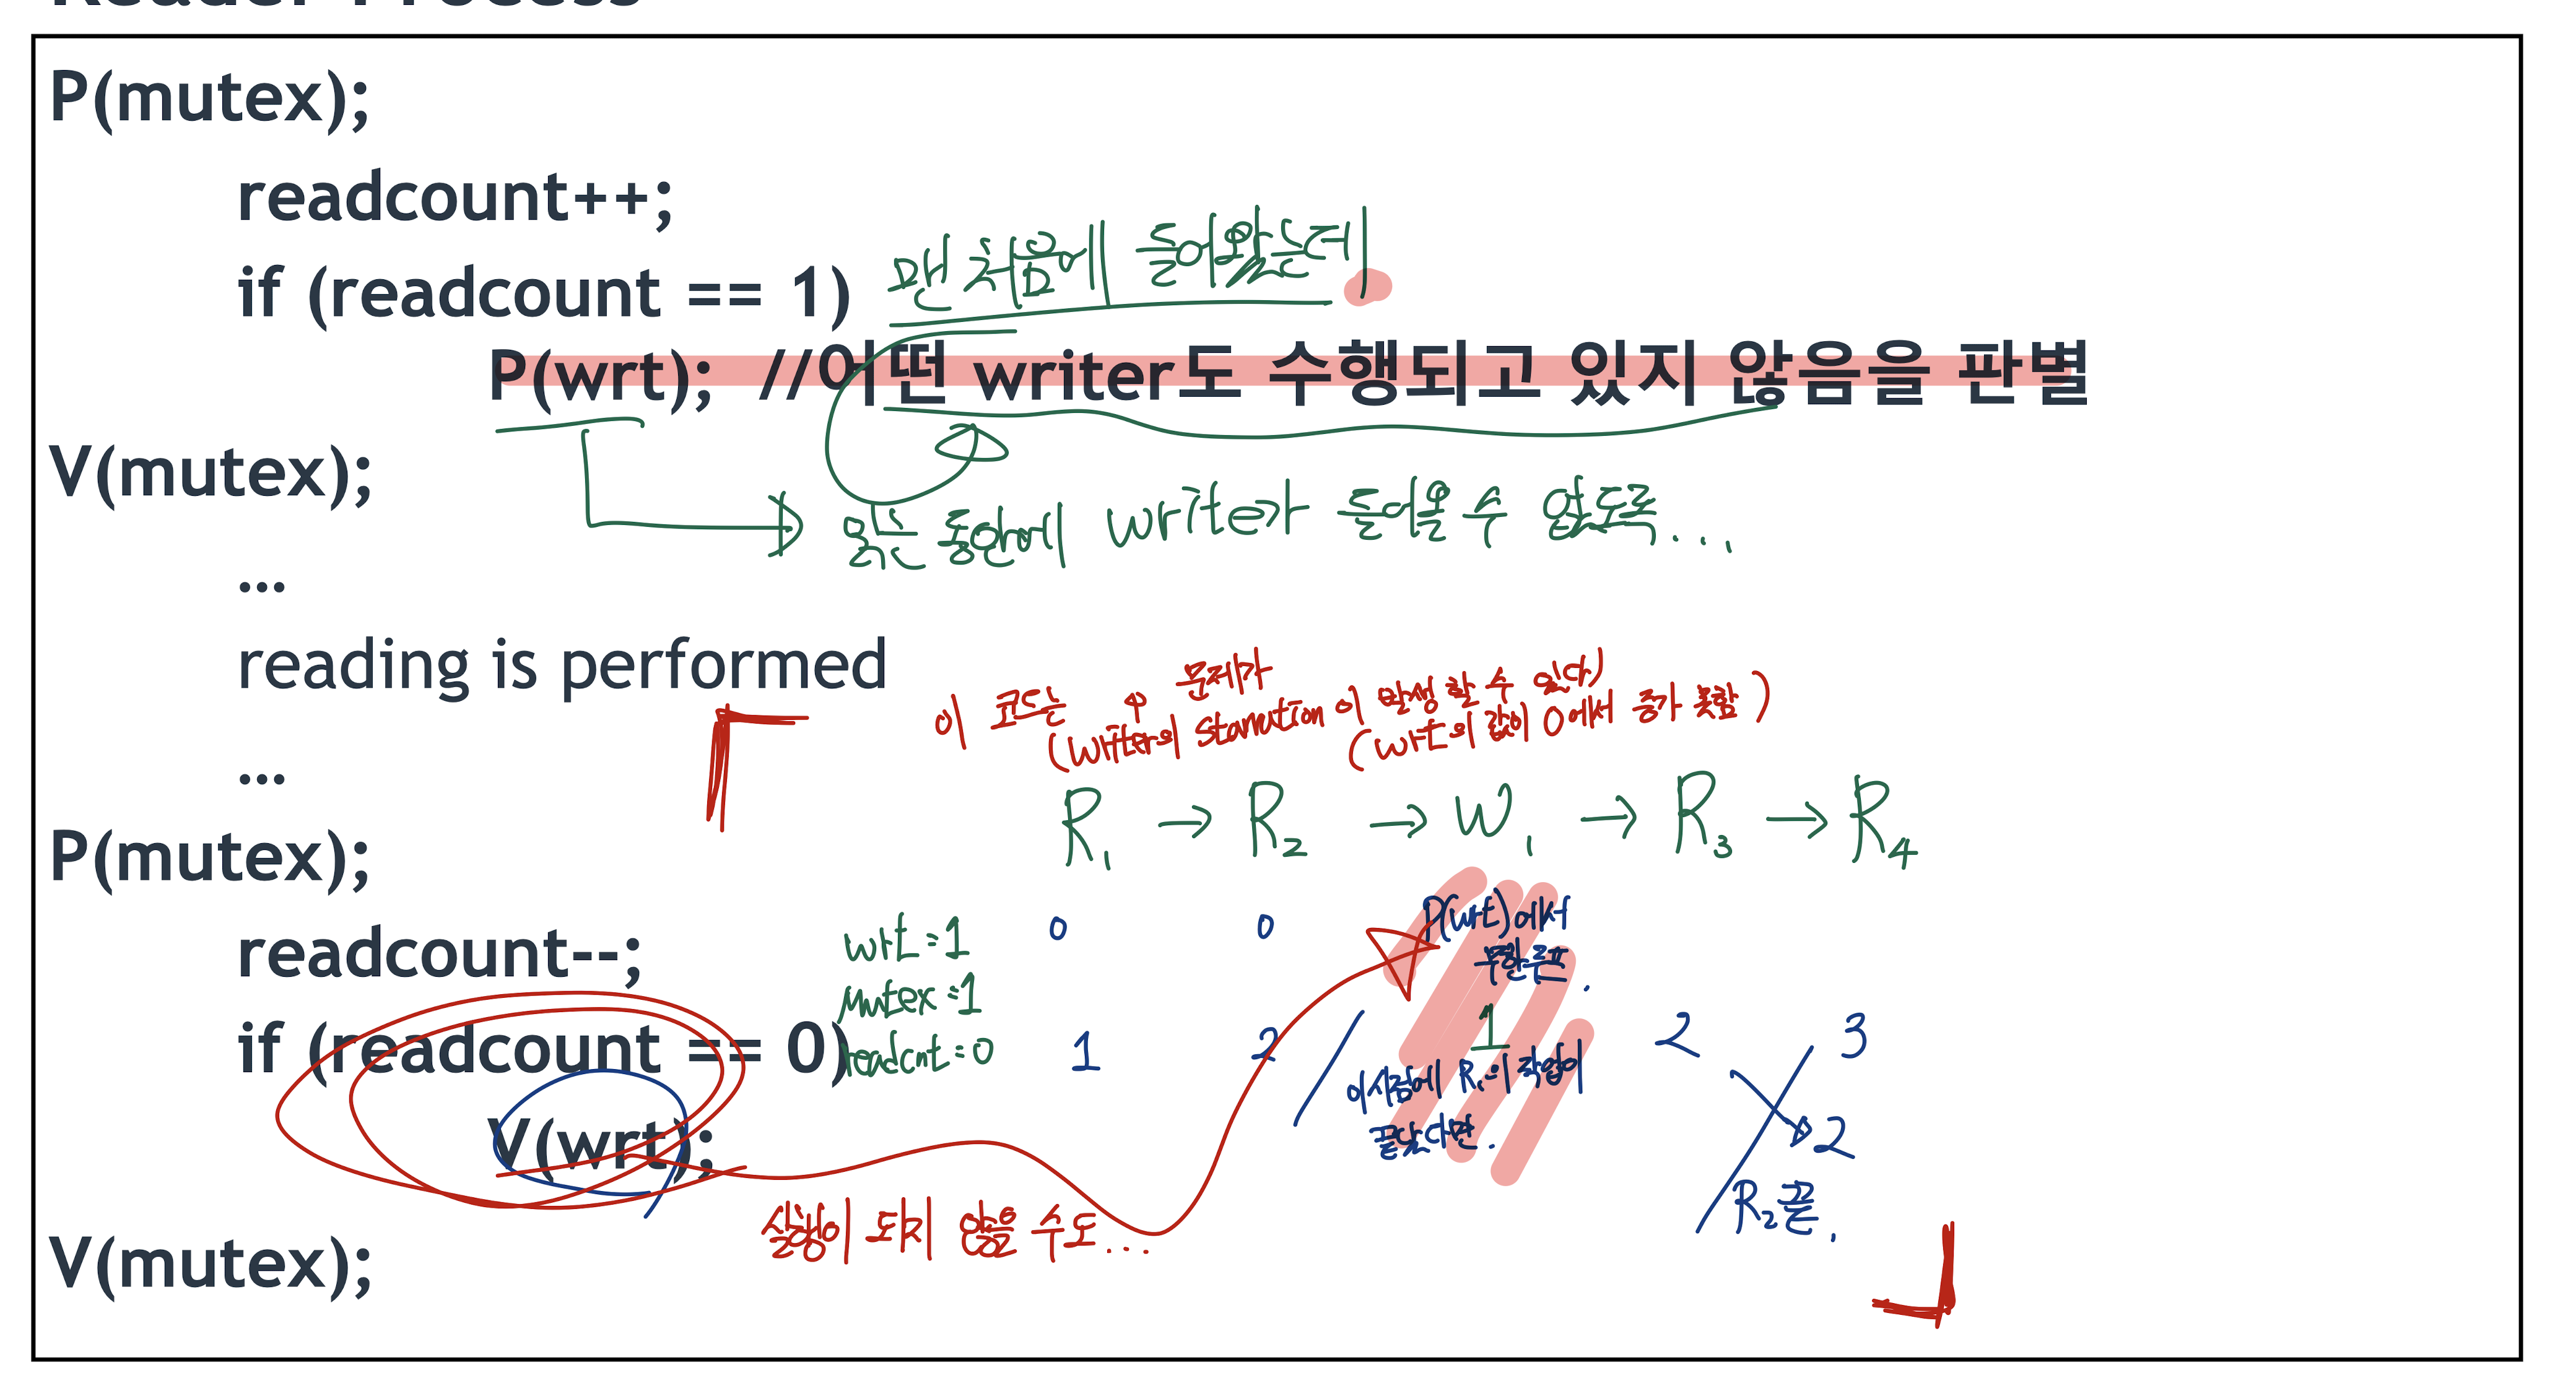 Reader Process
P(mutex);
readcount++;
if (readcount == 1) 맨 처음에 들어왔는데
P(wrt); //어떤 writer도 수행되고 있지 않음을 판별
V(mutex);
읽는 동안에 write가 들어올 수 없도록...
...
reading is performed
이 코드는 문제가
(writer의 starvation 이 발생 할 수 있다)
(wrt의 값이 0에서 증가 못함)
...
R1 → R2 → W1 → R3 → R4
P(mutex);
readcount--;
wrt=1 0 0 P(wrt)에서
mutex=1
if (readcount == 0) readcnt=0 1 2 1 2 3
이 시점에 R1의 작업이
끝났다면.
V(wrt);
2
R2끝.
실행이 되지 않을 수도...
V(mutex);